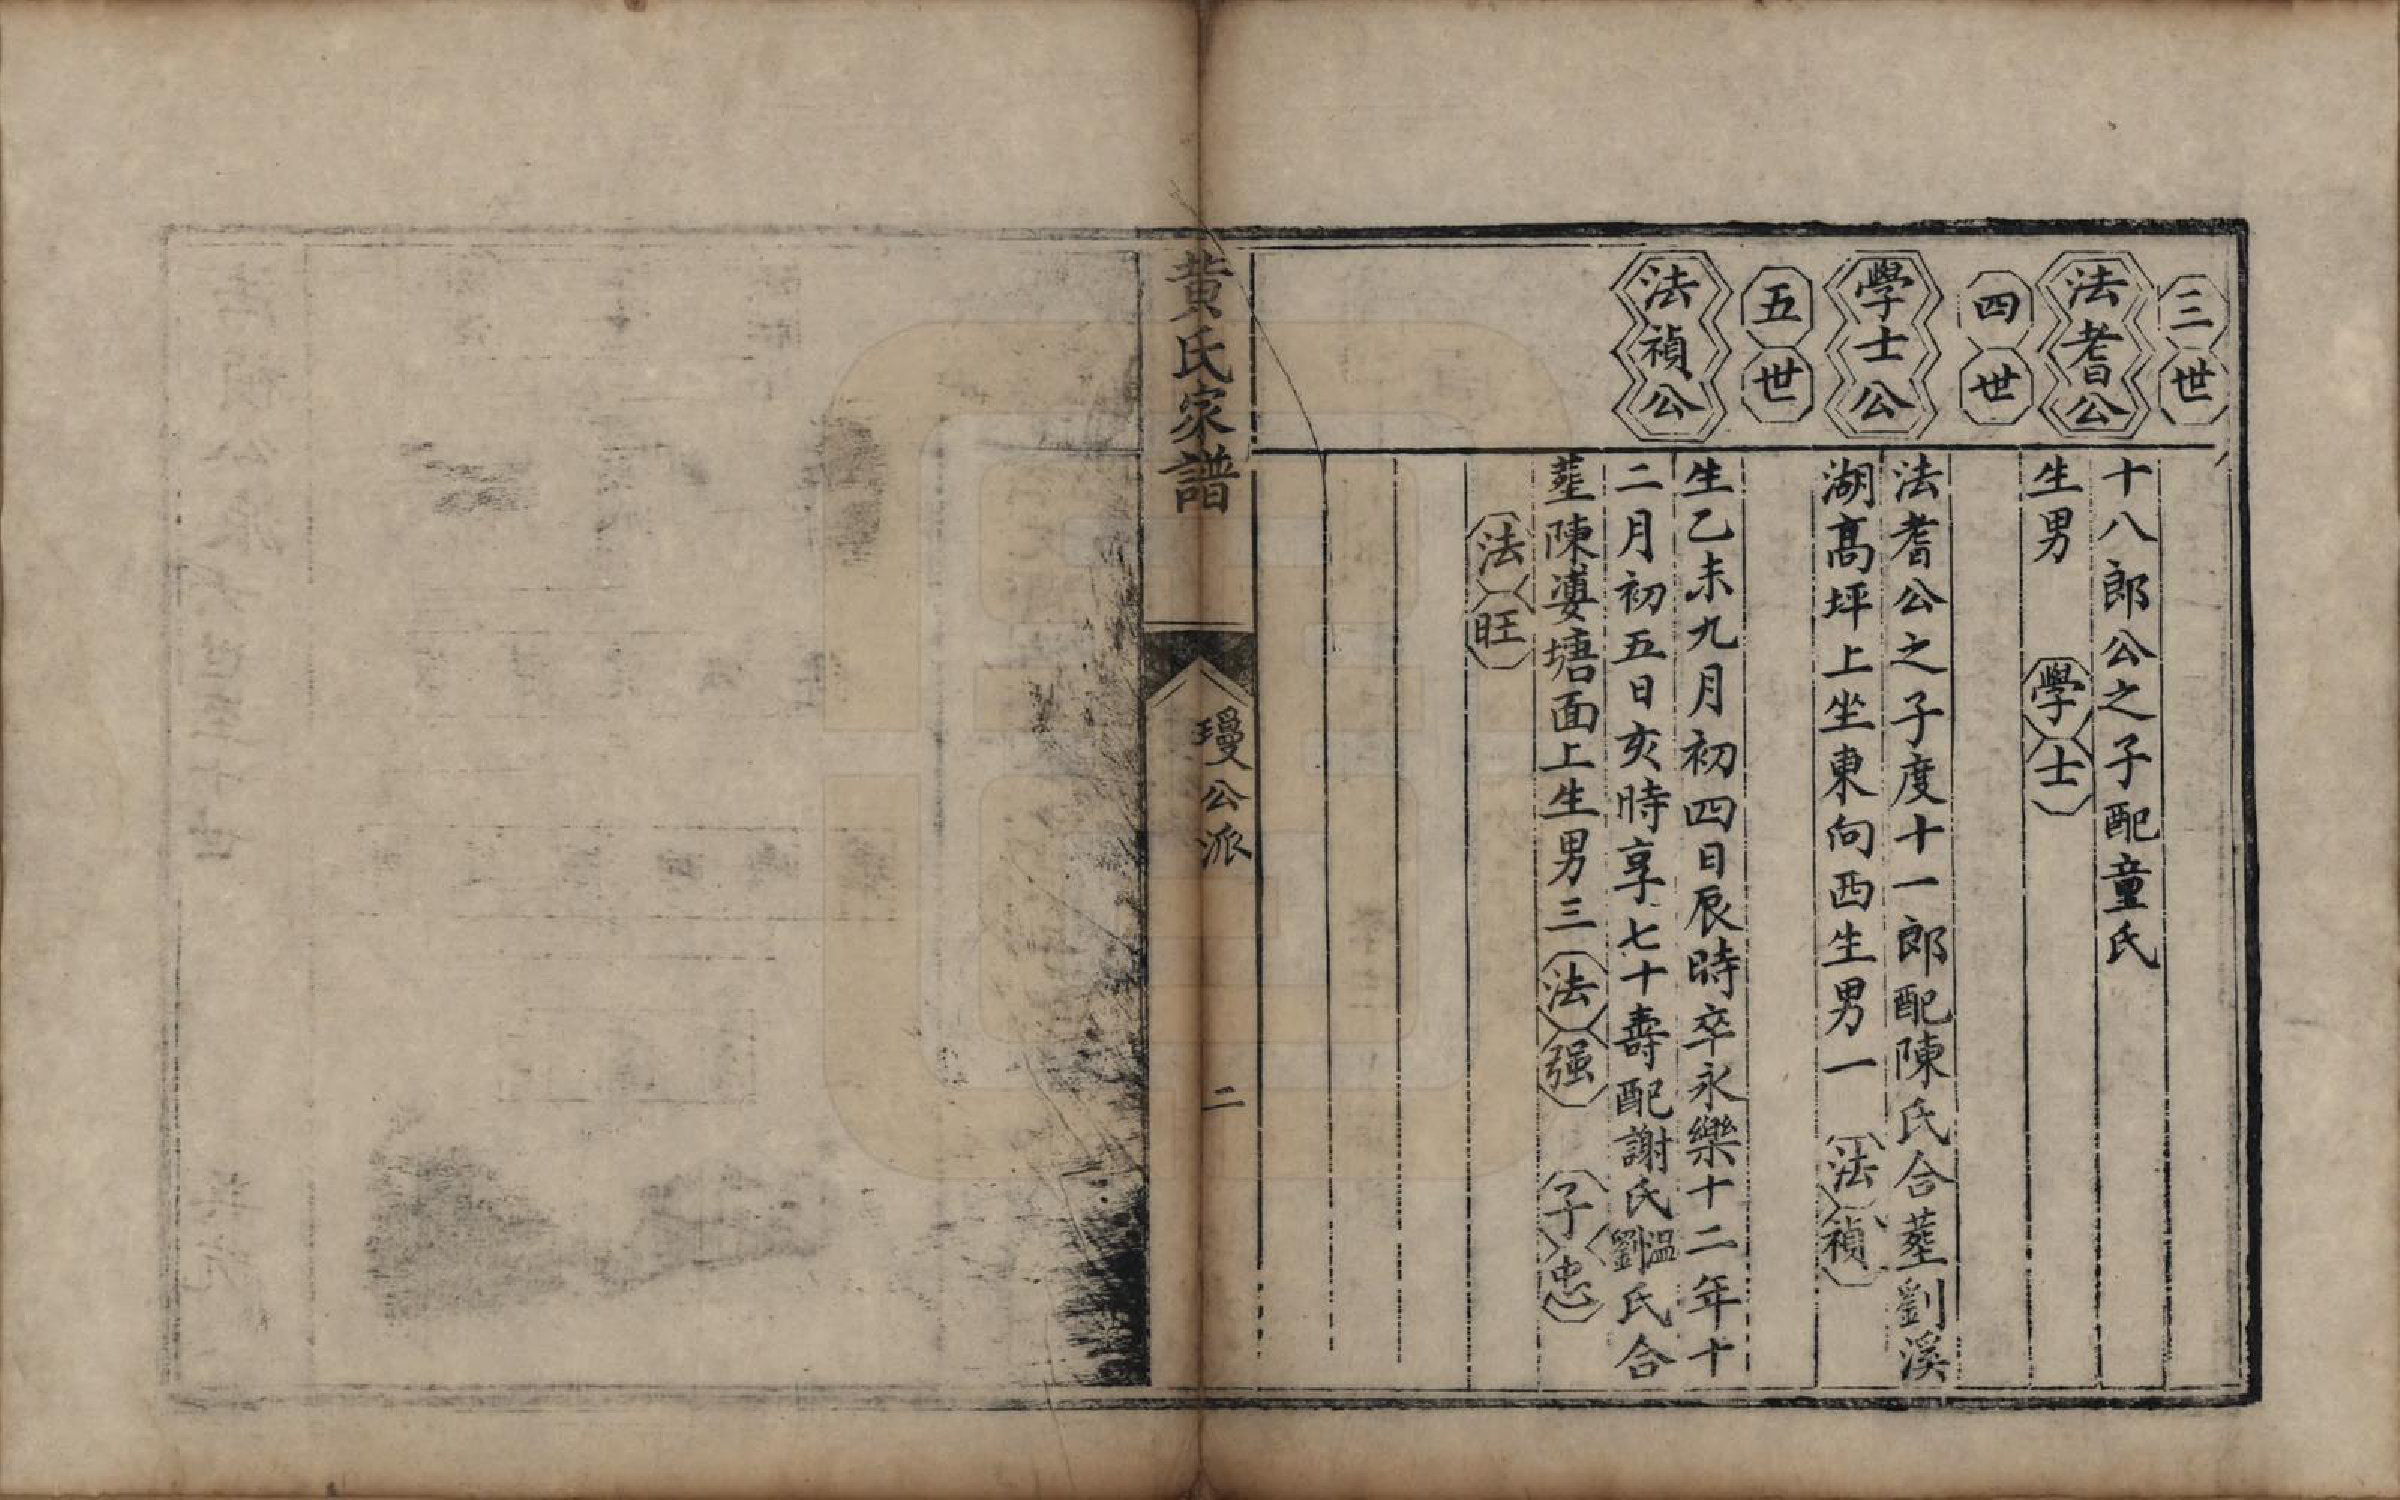 三世
法耆公
十八郎公之子配童氏
生男　學士
四世
學士公
法耆公之子度十一郎配陳氏合塟劉溪
湖髙坪上坐東向西生男一　法禎
五世
法禎公
生乙未九月初四日辰時卒永樂十二年十
二月初五日亥時享七十壽配謝氏溫劉氏合
塟陳婆塘面上生男三　法强　子忠
法旺
黄氏家譜
公派
二